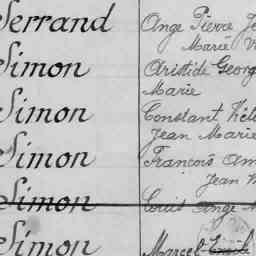 Serrand Ange Pierre Je
Marie V
Simon Aristide Georg
Marie
Simon Constant Hél
Jean Marie
Simon François Am
Jean M
Simon Louis Ange M
Simon Marcel